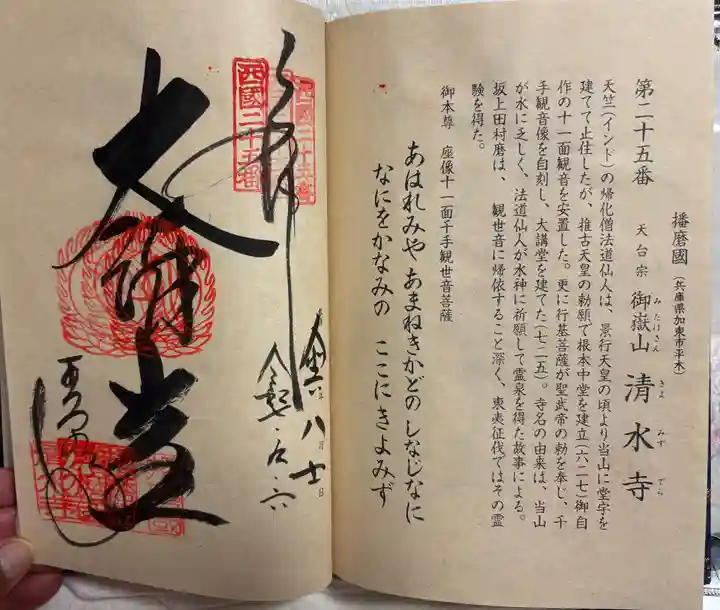 播磨國(兵庫県加東市平木)
第二十五番 天台宗 御嶽山 清水寺
みたけさん きよ みず でら
天竺(インド)の帰化僧法道仙人は、景行天皇の頃より当山に堂宇を
建てて止住したが、推古天皇の勅願で根本中堂を建立(六二七)御自
作の十一面観音を安置した。更に行基菩薩が聖武帝の勅を奉じ、千
手観音像を自刻し、大講堂を建てた(七二五)。寺名の由来は、当山
が水に乏しく、法道仙人が水神に祈願して霊泉を得た故事による。
坂上田村磨は、観世音に帰依すること深く、東夷征伐ではその霊
験を得た。
御本尊 座像十一面千手観世音菩薩
あはれみや あまねきかどの しなじなに
なにをかなみの ここにきよみず
西國二十五番
奉
大講堂
清水寺